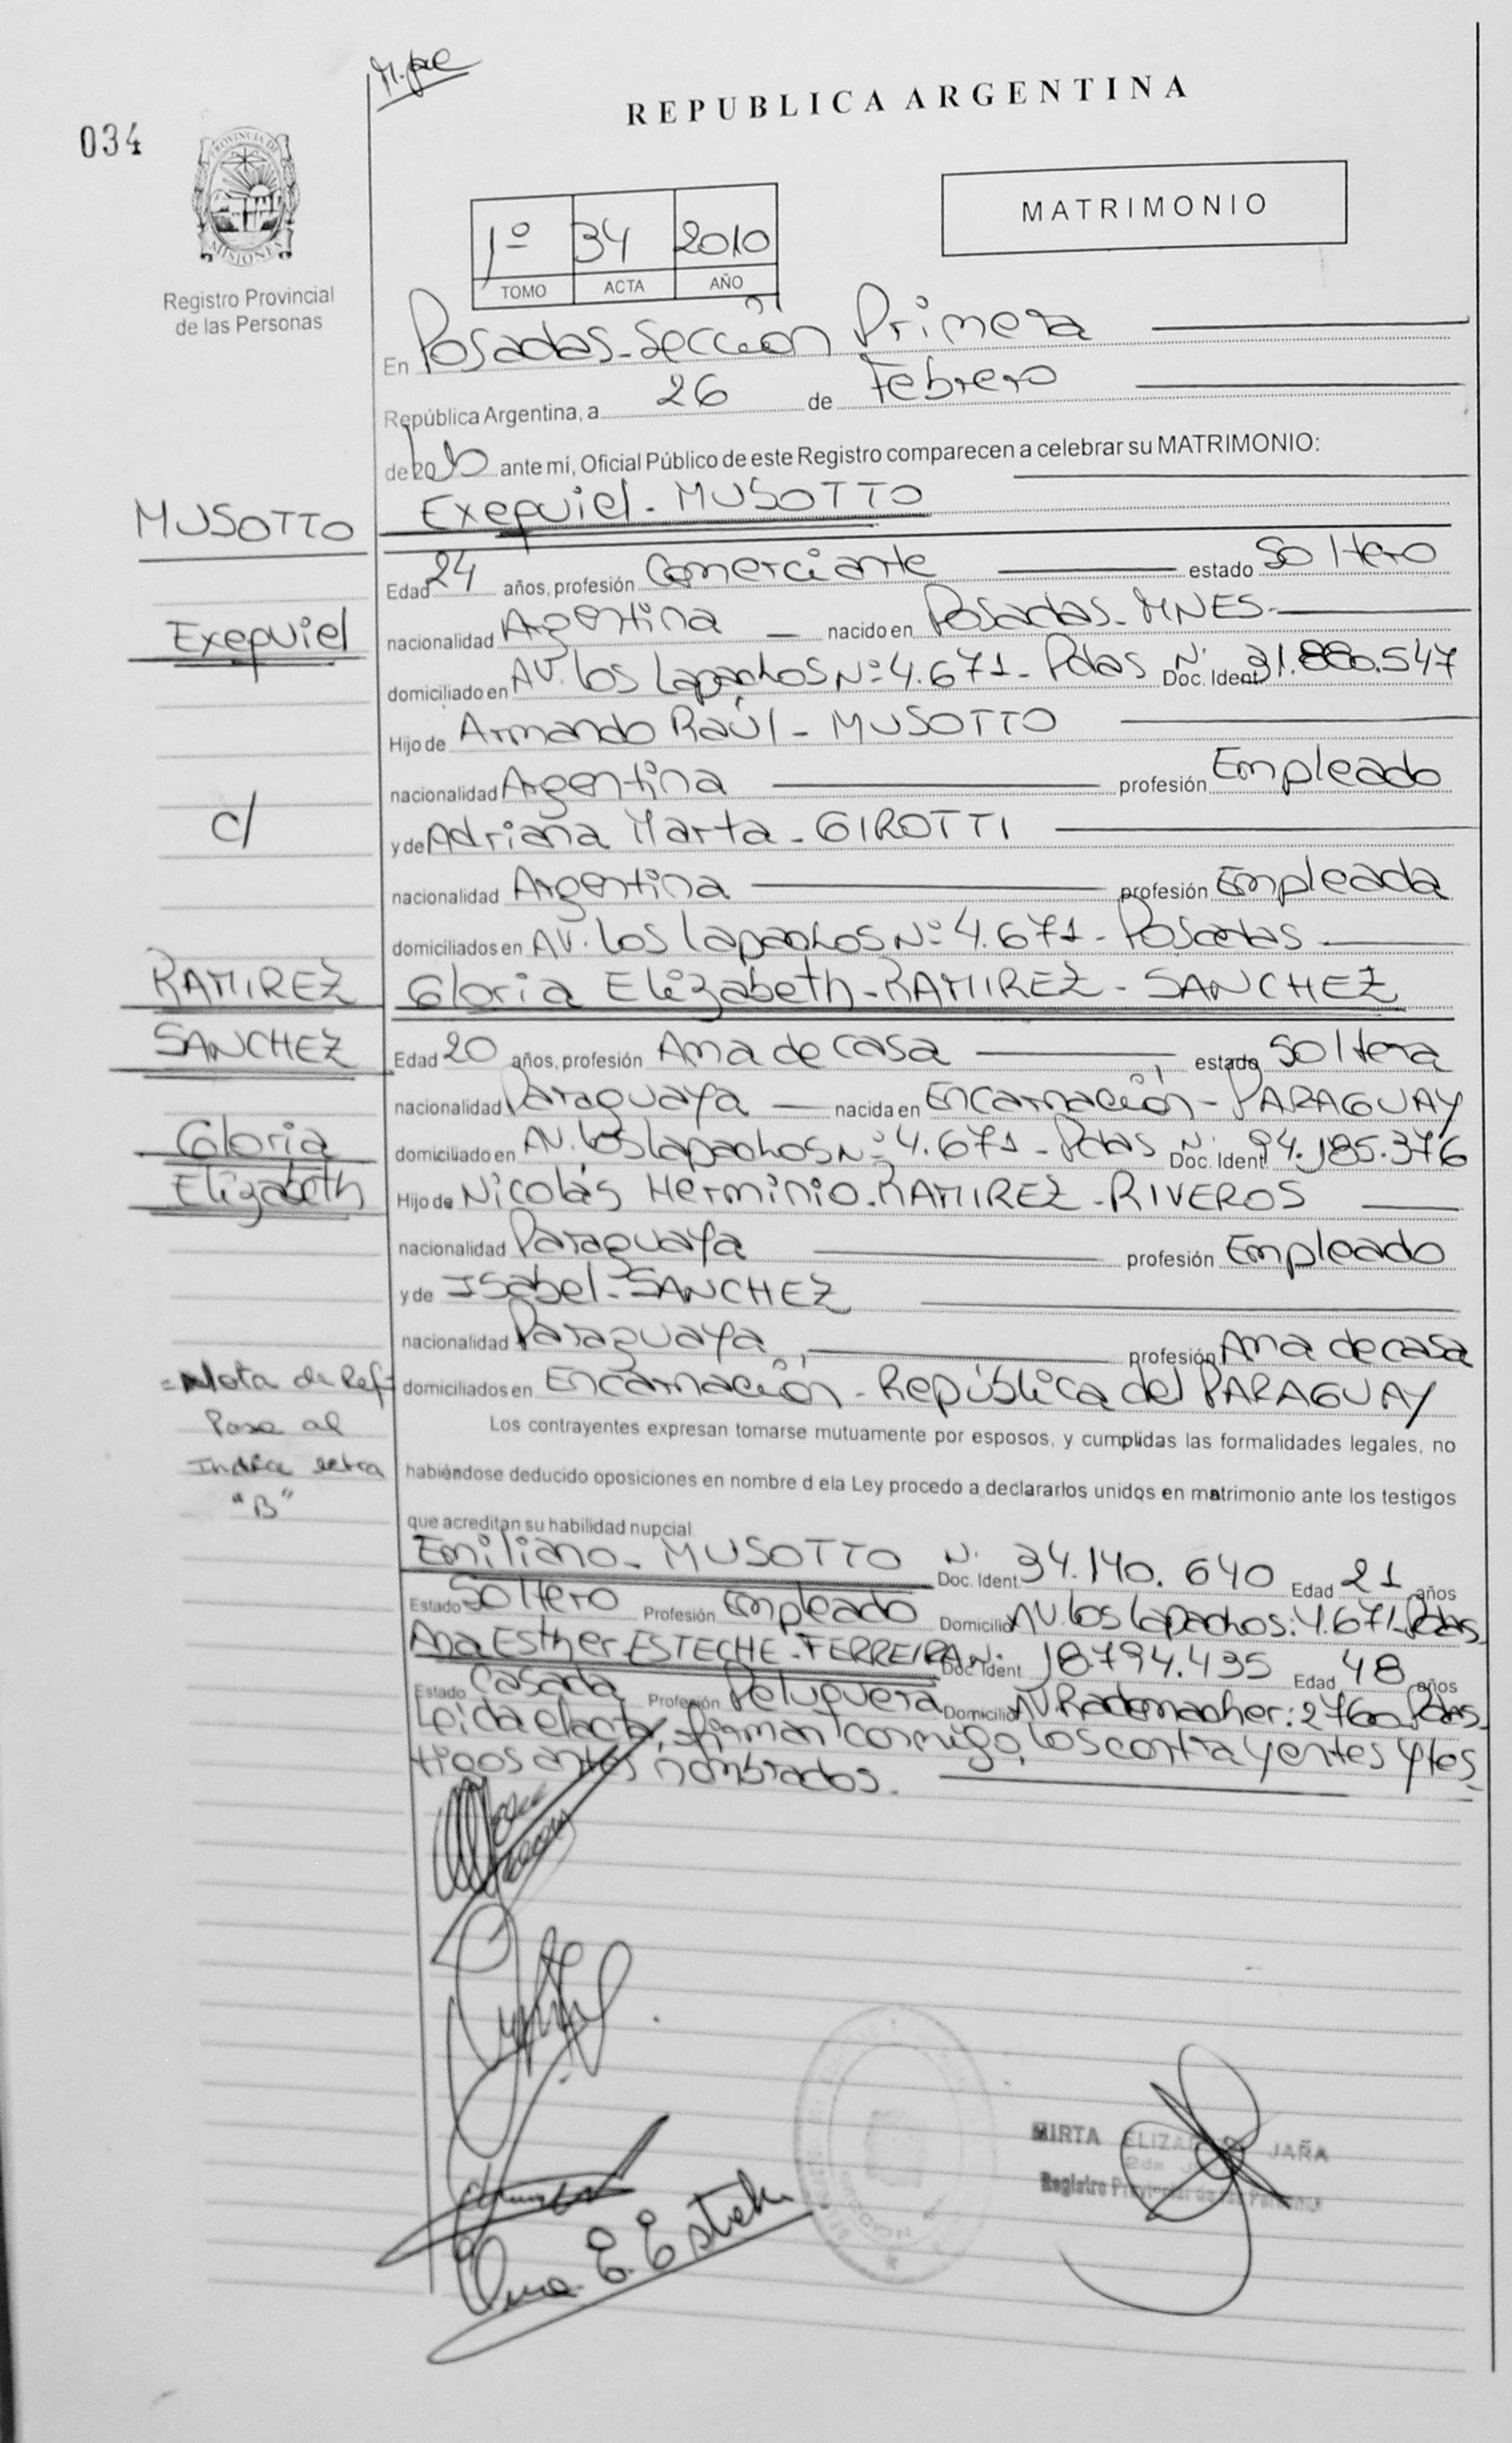 REPUBLICA ARGENTINA
034
PROVINCIA DE MISIONES
Registro Provincial
de las Personas
MATRIMONIO
1º 34 2010
TOMO ACTA AÑO
En Posadas-Sección Primera
República Argentina, a 26 de Febrero
de 2010 ante mí, Oficial Público de este Registro comparecen a celebrar su MATRIMONIO:
MUSOTTO
Exequiel - MUSOTTO
Edad 24 años, profesión Comerciante estado Soltero
Exequiel
nacionalidad Argentina nacido en Posadas-MNES-
domiciliado en AV. Los Lapachos Nº 4.671 - Pdas Doc. Ident. Nº 31.880.547
Hijo de Armando Raúl - MUSOTTO
nacionalidad Argentina profesión Empleado
c/
y de Adriana Marta - GIROTTI
nacionalidad Argentina profesión Empleada
domiciliados en AV. Los Lapachos Nº 4.671 - Posadas
RAMIREZ
Gloria Elizabeth - RAMIREZ - SANCHEZ
SANCHEZ
Edad 20 años, profesión Ama de casa estado Soltera
nacionalidad Paraguaya nacida en Encarnación - PARAGUAY
Gloria
domiciliado en AV. Los Lapachos Nº 4.671 - Pdas Doc. Ident. Nº 94.185.376
Elizabeth
Hijo de Nicolás Herminio - RAMIREZ - RIVEROS
nacionalidad Paraguaya profesión Empleado
y de Isabel - SANCHEZ
nacionalidad Paraguaya profesión Ama de casa
=Nota de Ref=
domiciliados en Encarnación - República del PARAGUAY
Pasa al
Los contrayentes expresan tomarse mutuamente por esposos, y cumplidas las formalidades legales, no
Indice letra
habiéndose deducido oposiciones en nombre d ela Ley procedo a declararlos unidos en matrimonio ante los testigos
"B"
que acreditan su habilidad nupcial.
Emiliano - MUSOTTO Doc. Ident. Nº 34.140.640 Edad 21 años
Estado Soltero Profesión Empleado Domicilio AV. Los Lapachos: 4.671-Pdas
Ana Esther ESTECHE - FERREIRA Nº Doc. Ident. 18.794.435 Edad 48 años
Estado Casada Profesión Peluquera Domicilio AV. Rademacher: 2760 Pdas
Leida el acta, firman conmigo, los contrayentes y tes
tigos antes nombrados.
Ana E. Esteche
MIRTA ELIZABETH JAÑA
Registro Provincial de las Personas